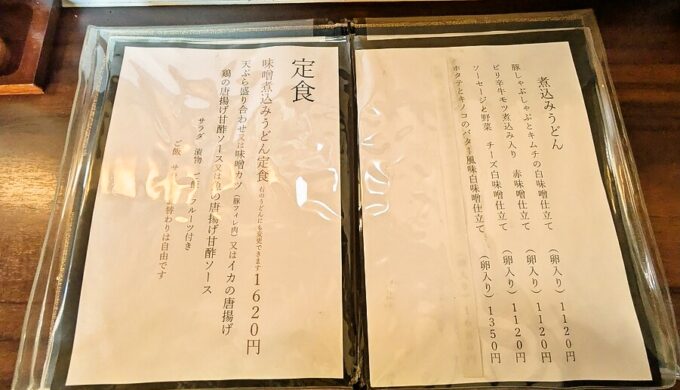 煮込みうどん
豚しゃぶしゃぶとキムチの白味噌仕立て (卵入り) 1120円
ピリ辛牛モツ煮込み入り 赤味噌仕立て (卵入り) 1120円
ソーセージと野菜 チーズ白味噌仕立て (卵入り) 1120円
ホタテとキノコのバター風味白味噌仕立て (卵入り) 1350円
定食
味噌煮込みうどん定食 右のうどんにも変更できます 1620円
天ぷら盛り合わせ又は味噌カツ (豚フィレ肉) 又はイカの唐揚げ
鶏の唐揚げ甘酢ソース又は の唐揚げ甘酢ソース
サラダ 漬物 フルーツ付き
ご飯 替わりは自由です